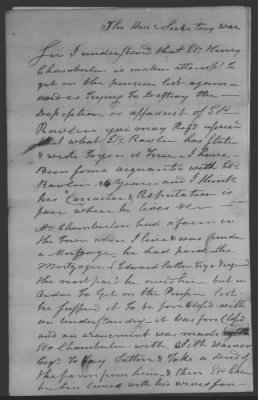 The Honr Secretary War
Sir I understand that Mr Henry
Chamberlin is makeing attempt to
get on the pension list again
and is Trying to Destroy the
Deposition or affidavit of Mr
Rawlin you may Rest assured
that what Mr Rawlin has state
& wrote to you is True I have
Been some acquainted with Mr
Rawlin years and I think
his Caracter & Reputation is
fair where he lives
Mr Chamberlin had a farm in
the Town where I live & was under
a Mortgage he had paid the
Mortgagee Edward Sutton Esqr
the most part he owed him but in
order to Get on the Pension List
he suffered it To be foreclosed with
an understanding it was foreclosed
and an arangement was made
Chamberlin with Seth Warner
Esqr To pay Sutton & Take a Deed of
the farm from him & then Cham
berlin lived with his